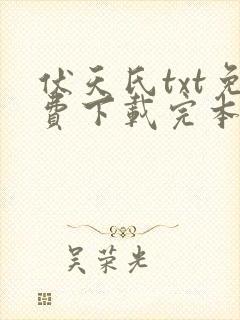 伏天氏txt免
费下载完本
吴荣光